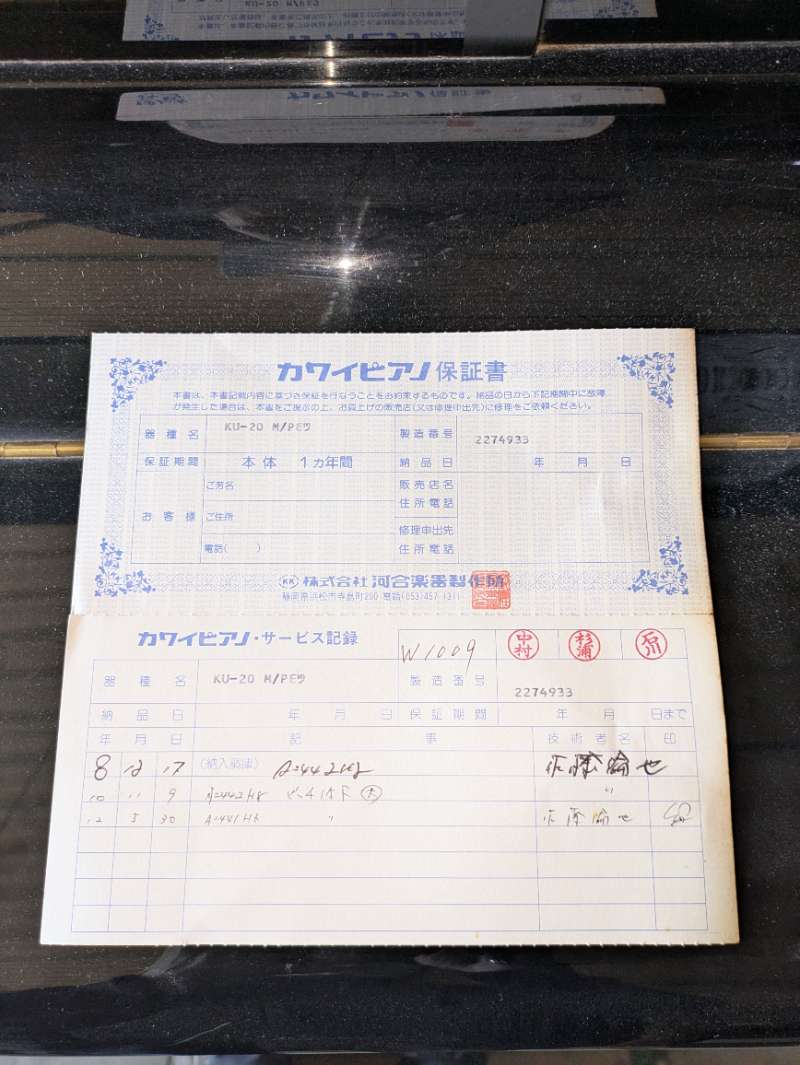 KU-20 M/PEウ
カワイピアノ 保証書
本書は、本書記載内容に基づき保証を行なうことをお約束するものです。納品の日から下記期間中に故障
が発生した場合は、本書をご提示の上、お買上げの販売店(又は修理申出先)に修理をご依頼ください。
器種名 KU-20 M/PEウ 製造番号 2274933
保証期間 本体 1カ年間 納品日 年 月 日
お客様 ご芳名 販売店名
住所電話
ご住所
修理申出先
電話( ) 住所電話
株式会社 河合楽器製作所
静岡県浜松市寺島町200 電話(053)457-1311
カワイピアノ・サービス記録 W1009 中村 杉浦 石川
器種名 KU-20 M/PEウ 製造番号 2274933
納品日 年 月 日 保証期間 年 月 日まで
年 月 日 記事 技術者名 印
8 12 17 (納入調律) A=442Hz 佐藤 也
10 11 9 A=442Hz 〃
12 5 30 A=441Hz 〃 佐藤 也